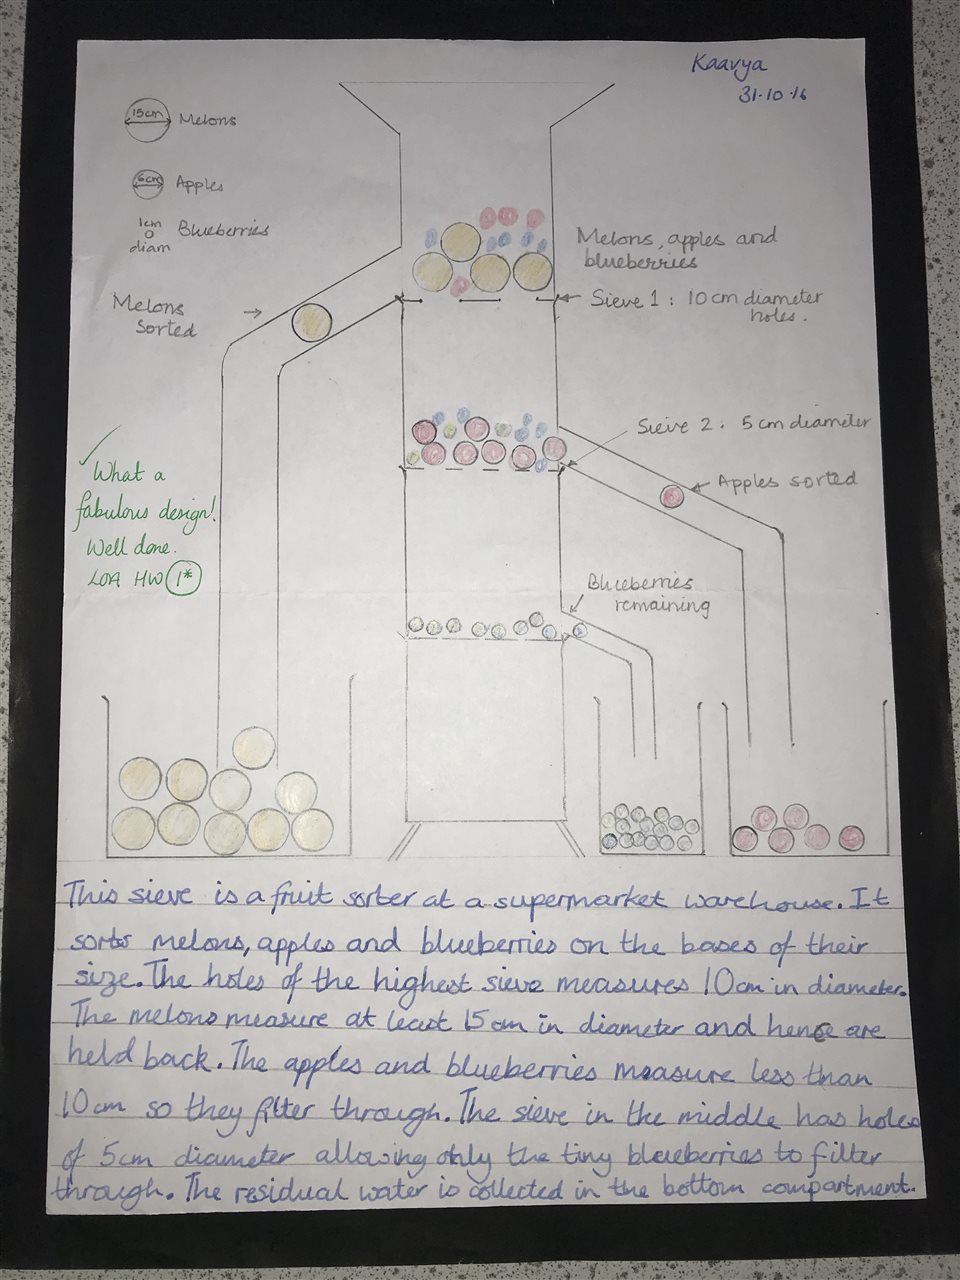 Kaavya
31.10.16
15cm Melons
6cm Apples
1cm
diam
Blueberries
Melons, apples and
blueberries
Melons
Sorted
Sieve 1 : 10 cm diameter
holes.
Sieve 2 : 5 cm diameter
Apples sorted
What a
fabulous design!
Well done.
LOA HW 1*
Blueberries
remaining
This sieve is a fruit sorter at a supermarket warehouse. It
sorts melons, apples and blueberries on the bases of their
size. The holes of the highest sieve measures 10cm in diameter.
The melons measure at least 15cm in diameter and hence are
held back. The apples and blueberries measure less than
10cm so they filter through. The sieve in the middle has holes
of 5cm diameter allowing only the tiny blueberries to filter
through. The residual water is collected in the bottom compartment.